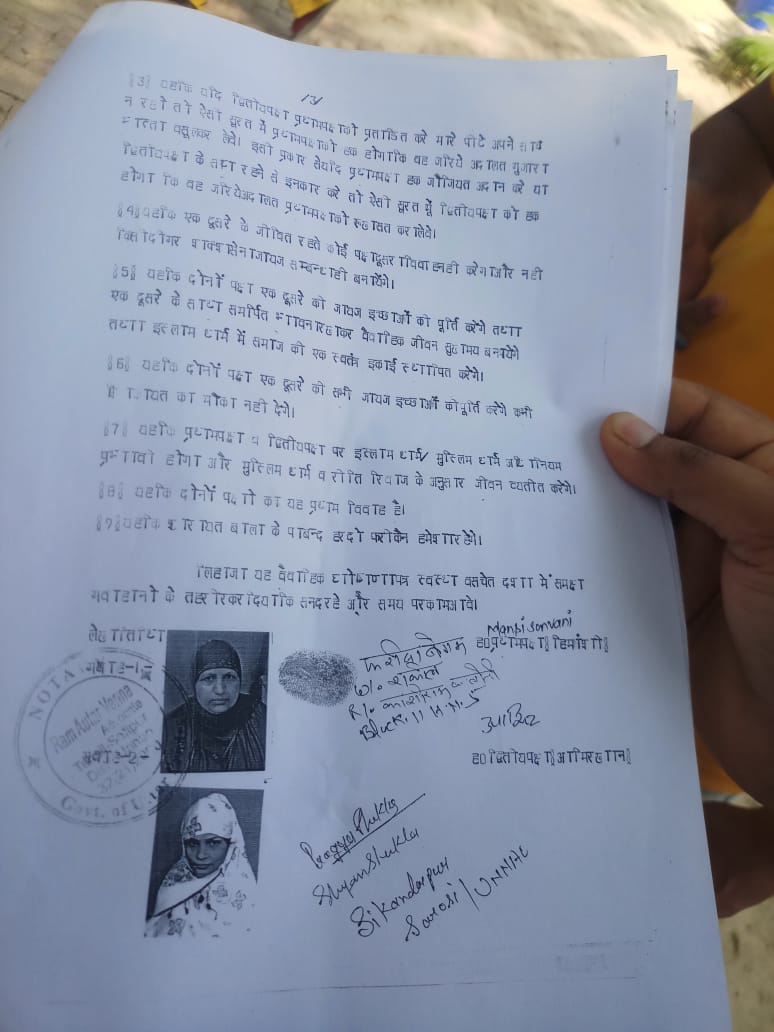 /3/
§3§ यहकि यदि द्वितीयपक्ष प्रथमपक्ष को प्रताडित करे मारे पीटे अपने साथ
न रखे तो ऐसी सूरत में प्रथमपक्ष को हक होगा कि वह जरिये अदालत गुजारा
भत्ता वसूलकर लेवे। इसी प्रकार से यदि प्रथमपक्ष हक जौजियत अदा न करे या
द्वितीयपक्ष के साथ रहने से इनकार करे तो ऐसी सूरत में द्वितीयपक्ष को हक
होगा कि वह जरिये अदालत प्रथमपक्ष को रूखसत करा लेवे।
§4§ यहकि एक दूसरे के जीवित रहते कोई पक्ष दूसरा विवाह नही करेगा और नही
किसी दीगर शख्श से नाजायज सम्बन्ध ही बनायेंगे।
§5§ यहकि दोनों पक्ष एक दूसरे की जायज इच्छाओं की पूर्ति करेंगे तथा
एक दूसरे के साथ समर्पित भावना रखकर वैवाहिक जीवन सुखमय बनायेंगे
तथा इस्लाम धर्म में समाज की एक स्वतंत्र इकाई स्थापित करेंगे।
§6§ यहकि दोनों पक्ष एक दूसरे की सभी जायज इच्छाओं की पूर्ति करेंगे कभी
का मौका नही देंगे।
§7§ यहकि प्रथमपक्ष व द्वितीयपक्ष पर इस्लाम धर्म/ मुस्लिम धर्म अधिनियम
प्रभावी होगा और मुस्लिम धर्म व रीति रिवाज के अनुसार जीवन व्यतीत करेंगे।
§8§ यहकि दोनों पक्षो का यह प्रथम विवाह है।
§9§ यहकि शरियत बाला के पाबन्द हरदो फरीकैन हमेशा रहेंगे।
लिहाजा यह वैवाहिक घोषणापत्र स्वस्थ व सचेत दशा में समक्ष
गवाहानो के तहरीर कर दिया कि सनद रहे और समय पर काम आवे।
लेख तिथि
गवाह-1-
फरीदा बेगम
W/o शकील
R/o काशीराम कालोनी
Block. 11 H.N. 5
Manshi Sonvani
ह0 प्रथमपक्ष §हिमांशी§
आमिर
ह0 द्वितीयपक्ष §आमिर खान§
NOTA
Ram Autar Verma
Advocate
Govt. of U.P.
गवाह-2-
Pragya Shukla
Shyam Shukla
Sikandarpur
Sarosi / UNNAO